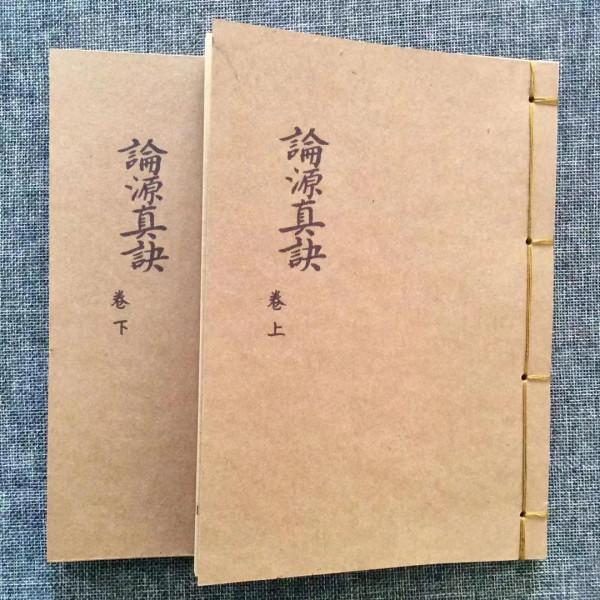 論源真訣
卷上
論源真訣
卷下